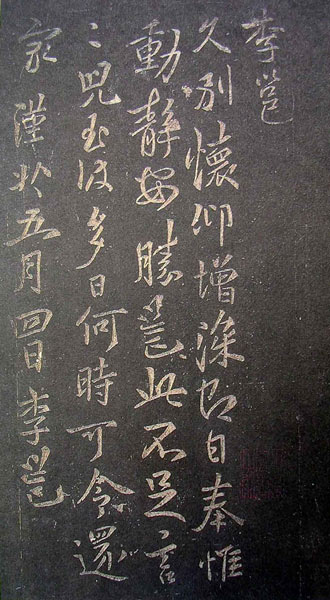 李邕
久別懷仰增深日奉惟
動靜安勝邕此不足〻言
〻兒至彼多日何時可令還
家謹狀五月四日李邕